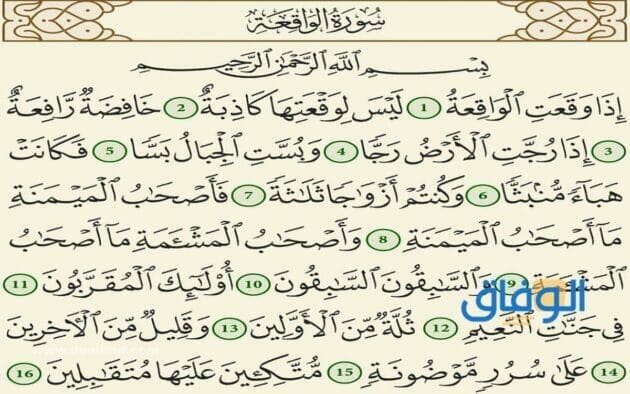 سُورَةُ الوَاقِعَة
بِسْمِ ٱللَّهِ ٱلرَّحْمَٰنِ ٱلرَّحِيمِ
إِذَا وَقَعَتِ ٱلْوَاقِعَةُ 1 لَيْسَ لِوَقْعَتِهَا كَاذِبَةٌ 2 خَافِضَةٌ رَّافِعَةٌ
3 إِذَا رُجَّتِ ٱلْأَرْضُ رَجًّا 4 وَبُسَّتِ ٱلْجِبَالُ بَسًّا 5 فَكَانَتْ
هَبَآءً مُّنۢبَثًّا 6 وَكُنتُمْ أَزْوَٰجًا ثَلَٰثَةً 7 فَأَصْحَٰبُ ٱلْمَيْمَنَةِ
مَآ أَصْحَٰبُ ٱلْمَيْمَنَةِ 8 وَأَصْحَٰبُ ٱلْمَشْـَٔمَةِ مَآ أَصْحَٰبُ
ٱلْمَشْـَٔمَةِ 9 وَٱلسَّٰبِقُونَ ٱلسَّٰبِقُونَ 10 أُو۟لَٰٓئِكَ ٱلْمُقَرَّبُونَ 11
الوفاق
فِى جَنَّٰتِ ٱلنَّعِيمِ 12 ثُلَّةٌ مِّنَ ٱلْأَوَّلِينَ 13 وَقَلِيلٌ مِّنَ ٱلْـَٔاخِرِينَ
14 عَلَىٰ سُرُرٍ مَّوْضُونَةٍ 15 مُّتَّكِـِٔينَ عَلَيْهَا مُتَقَٰبِلِينَ 16